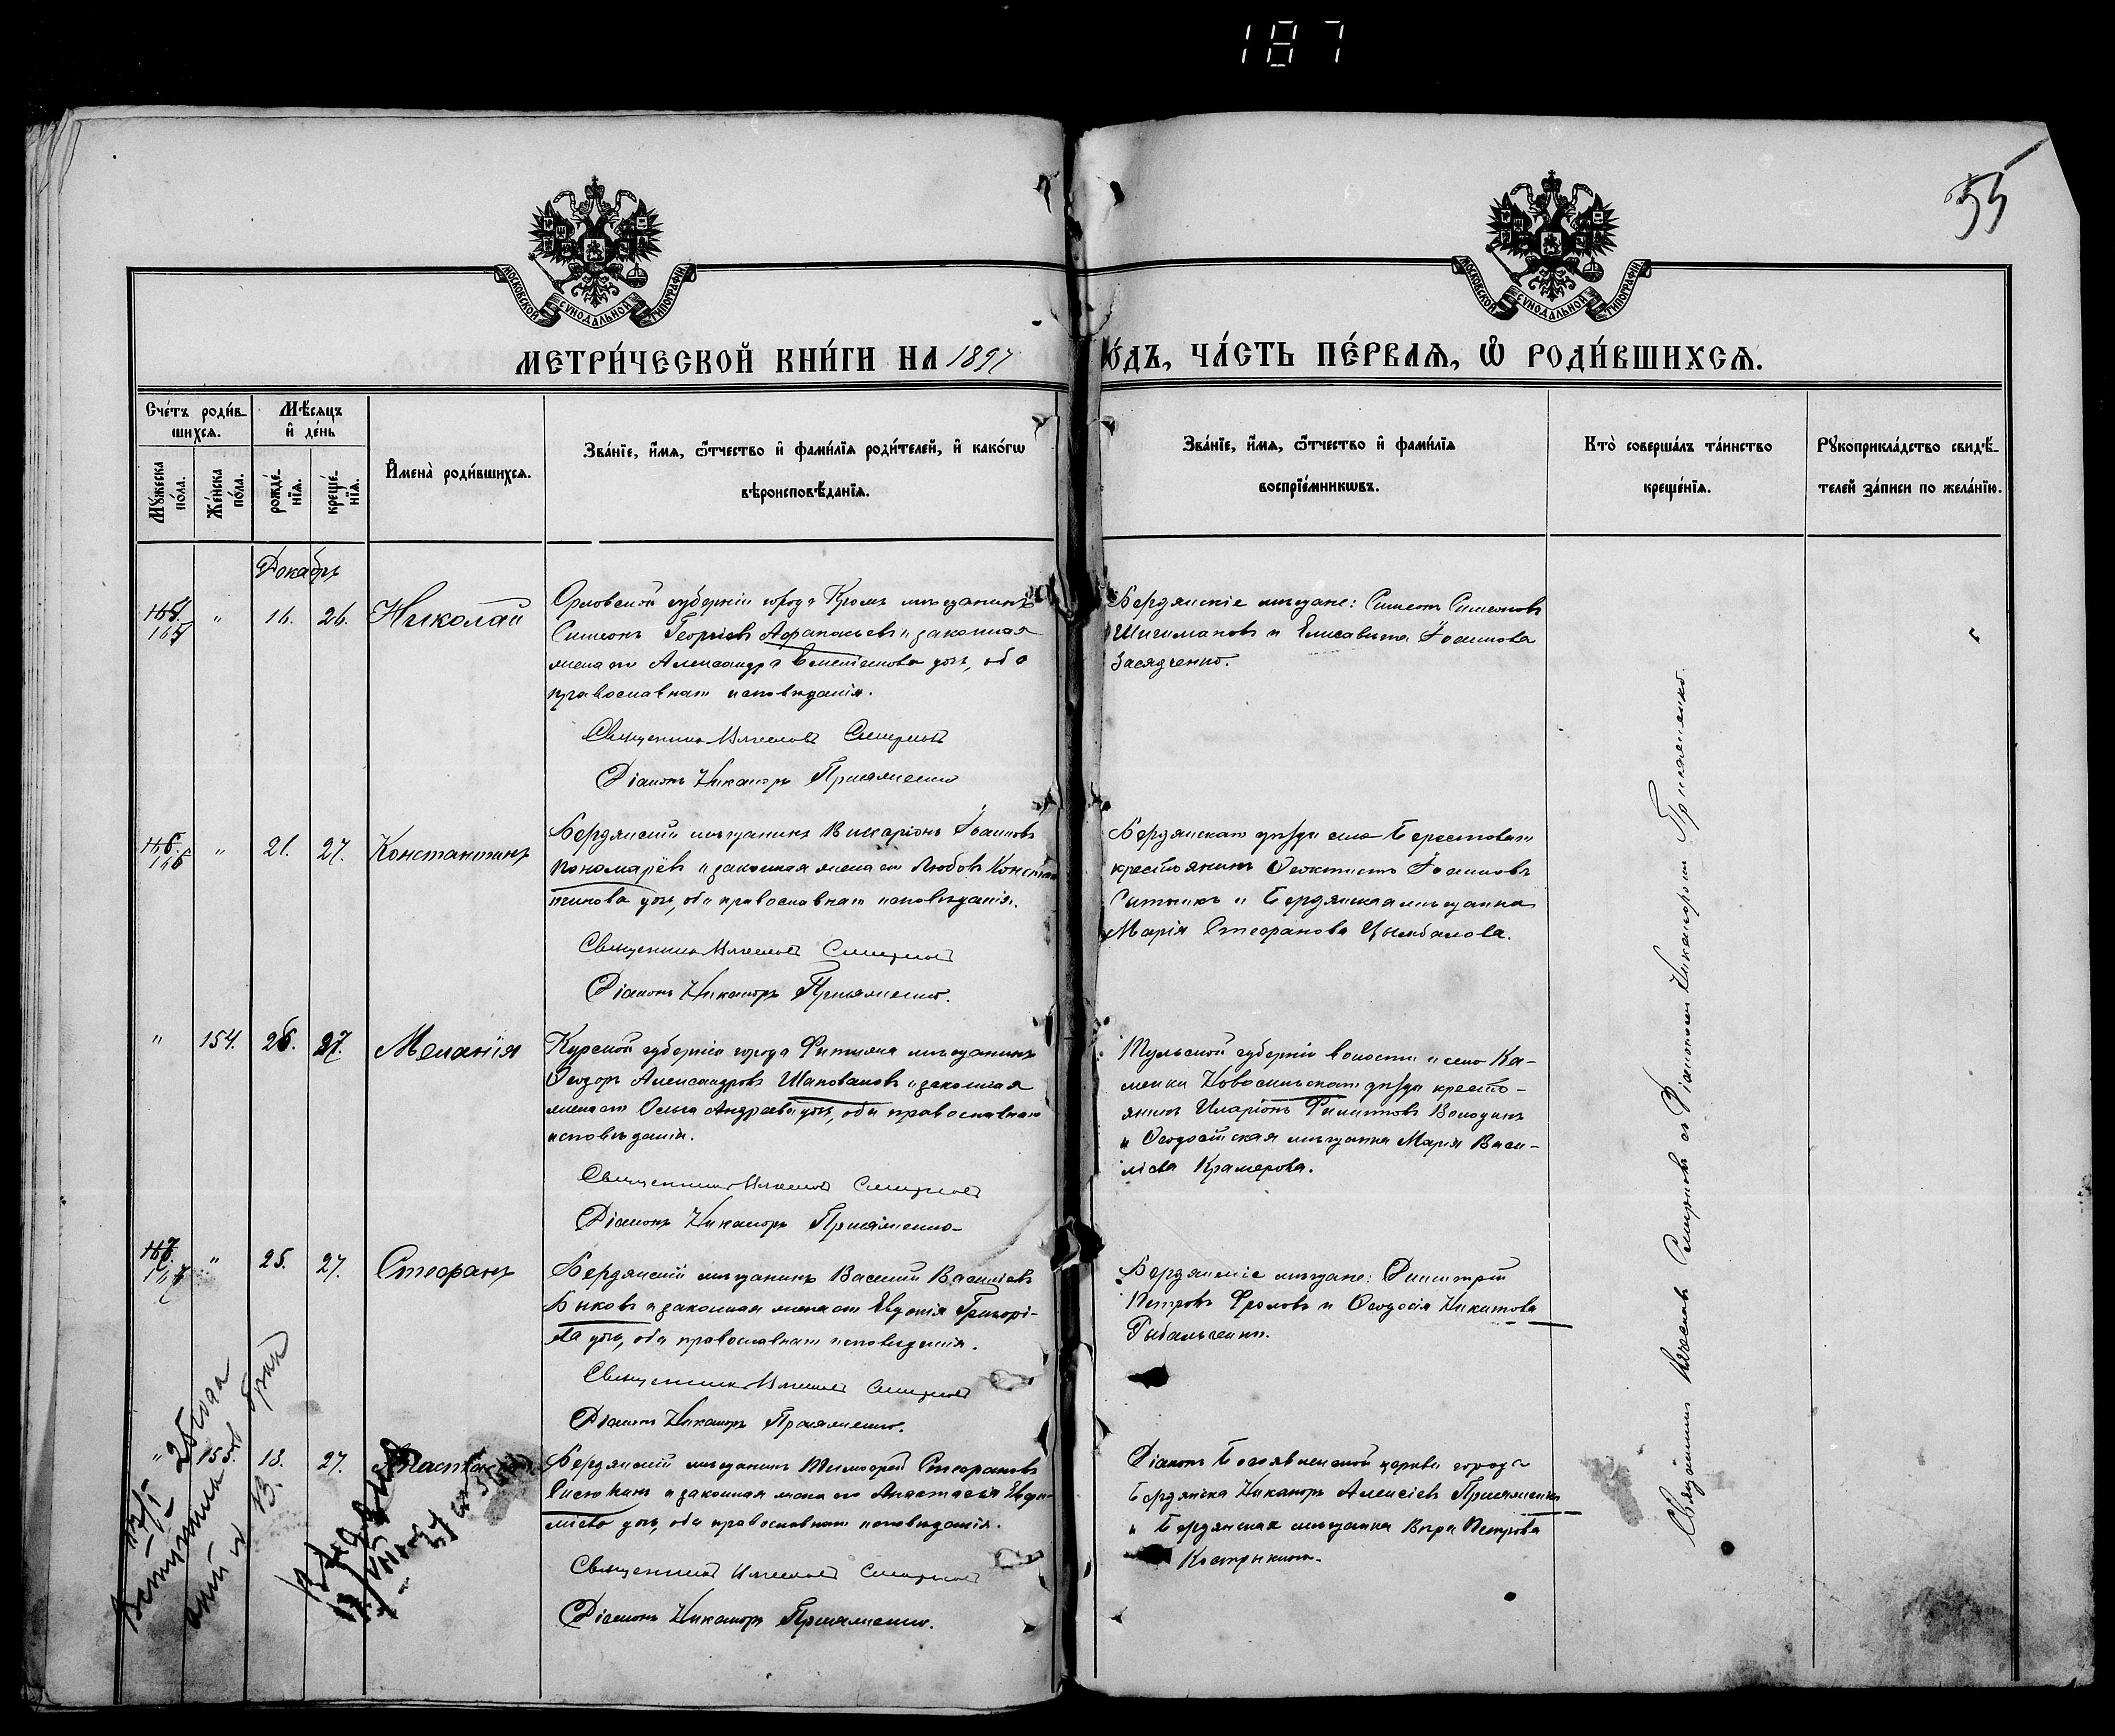 187
55
МОСКОВСКОЙ СѴНОДАЛЬНОЙ ТИПОГРАФІИ
МОСКОВСКОЙ СѴНОДАЛЬНОЙ ТИПОГРАФІИ
МЕТРИ́ЧЕСКОЙ КНИ́ГИ НА 1897
О́ДЪ, ЧА́СТЬ ПЕ́РВАѦ, Ѡ҆ РОДИ́ВШИХСѦ.
Сче́тъ роди́в-
шихсѧ.
Мꙋжеска по́ла.
Же́нска по́ла.
Мѣ́сѧцъ и҆ де́нь
рожде́-нїѧ.
креще́-нїѧ.
И҆мена̀ роди́вшихсѧ.
Зва́нїе, и҆́мѧ, ѻ҆́тчество и҆ фами́лїѧ роди́телей, и҆ како́гѡ
вѣроисповѣ́данїѧ.
Зва́нїе, и҆́мѧ, ѻ҆́тчество и҆ фами́лїѧ
воспрїе́мникѡвъ.
Кто̀ соверша́лъ та́инство
креще́нїѧ.
Рꙋкоприкла́дство свидѣ́-
телей за́писи по жела́нїю.
Декабрь
165 " 16. 26. Николай
Орловской губерніи города Кромъ мѣщанинъ
Симеонъ Георгіевъ Афанасьевъ и законная
жена его Александра Емеліанова дочь, оба
православнаго исповѣданія.
Священникъ Смирновъ
Діаконъ Никаноръ Присяженко
Бердянскіе мѣщане: Симеонъ Симеоновъ
Шигимановъ и Елисавета Іоаннова
Засядченко.
166 " 21. 27. Константинъ
Бердянскій мѣщанинъ Виссаріонъ Іоанновъ
Пономарёвъ и законная жена его Любовь Констан
тинова дочь, оба православнаго исповѣданія.
Священникъ Смирновъ
Діаконъ Никаноръ Присяженко.
Бердянскаго уѣзда села Берестоваго
крестьянинъ Ѳеоктистъ Іоанновъ
Сытникъ и Бердянская мѣщанка
Марія Стефанова Цымбалова.
" 154. 26. 27. Меланія
Курской губерніи города Фатежа мѣщанинъ
Ѳеодоръ Александровъ Шаповаловъ и законная
жена его Ольга Андреева дочь, оба православнаго
исповѣданія.
Священникъ Смирновъ
Діаконъ Никаноръ Присяженко
Тульской губерніи волости и села Ка-
менки Новосильскаго уѣзда кресть-
янинъ Иларіонъ Филипповъ Володинъ
и Ѳеодосійская мѣщанка Марія Васи-
ліева Крамерова.
167 " 25. 27. Стефанъ
Бердянскій мѣщанинъ Василій Василіевъ
Быковъ и законная жена его Евгенія Григорі-
ева дочь, оба православнаго исповѣданія.
Священникъ Смирновъ
Діаконъ Никаноръ Присяженко.
Бердянскіе мѣщане: Димитрій
Петровъ Фроловъ и Ѳеодосія Никитова
Рыбальченко.
" 155. 13. 27. Анастасія
Бердянскій мѣщанинъ Тимофей Стефановъ
и законная жена его Анастасія Евфи-
міева дочь, оба православнаго исповѣданія.
Священникъ Смирновъ
Діаконъ Никаноръ Присяженко.
Діаконъ Богоявленской церкви города
Бердянска Никаноръ Алексіевъ Присяженко
и Бердянская мѣщанка Вѣра Петрова
Кострыкина.
Священникъ Смирновъ съ Діакономъ Никаноромъ Присяженко.
25 года
вступила
брак